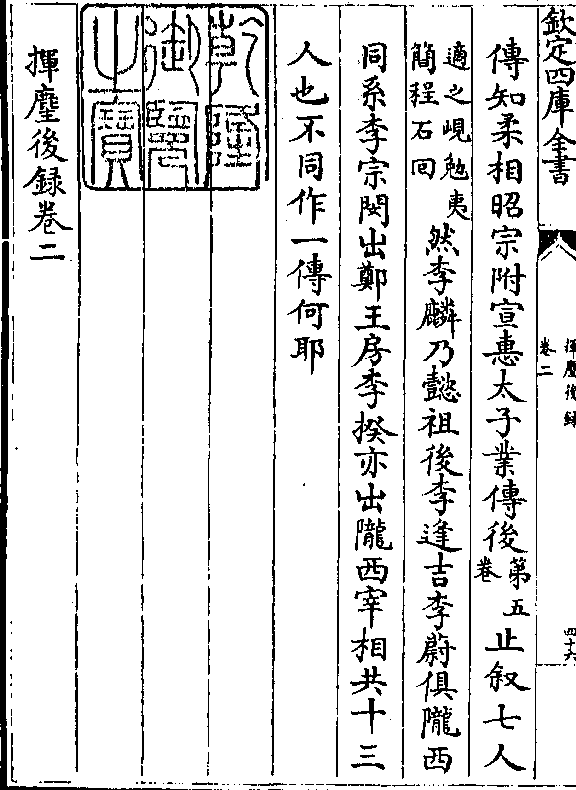 欽定四庫全書
揮麈後録
卷二
四十六
傳知柔相昭宗附宣惠太子業傳後第五卷止叙七人
適之峴勉夷簡程石回然李麟乃懿祖後李逢吉李蔚俱隴西
同系李宗閔出鄭王房李揆亦出隴西宰相共十三
人也不同作一傳何耶
乾隆
御覽
之寶
揮麈後録卷二